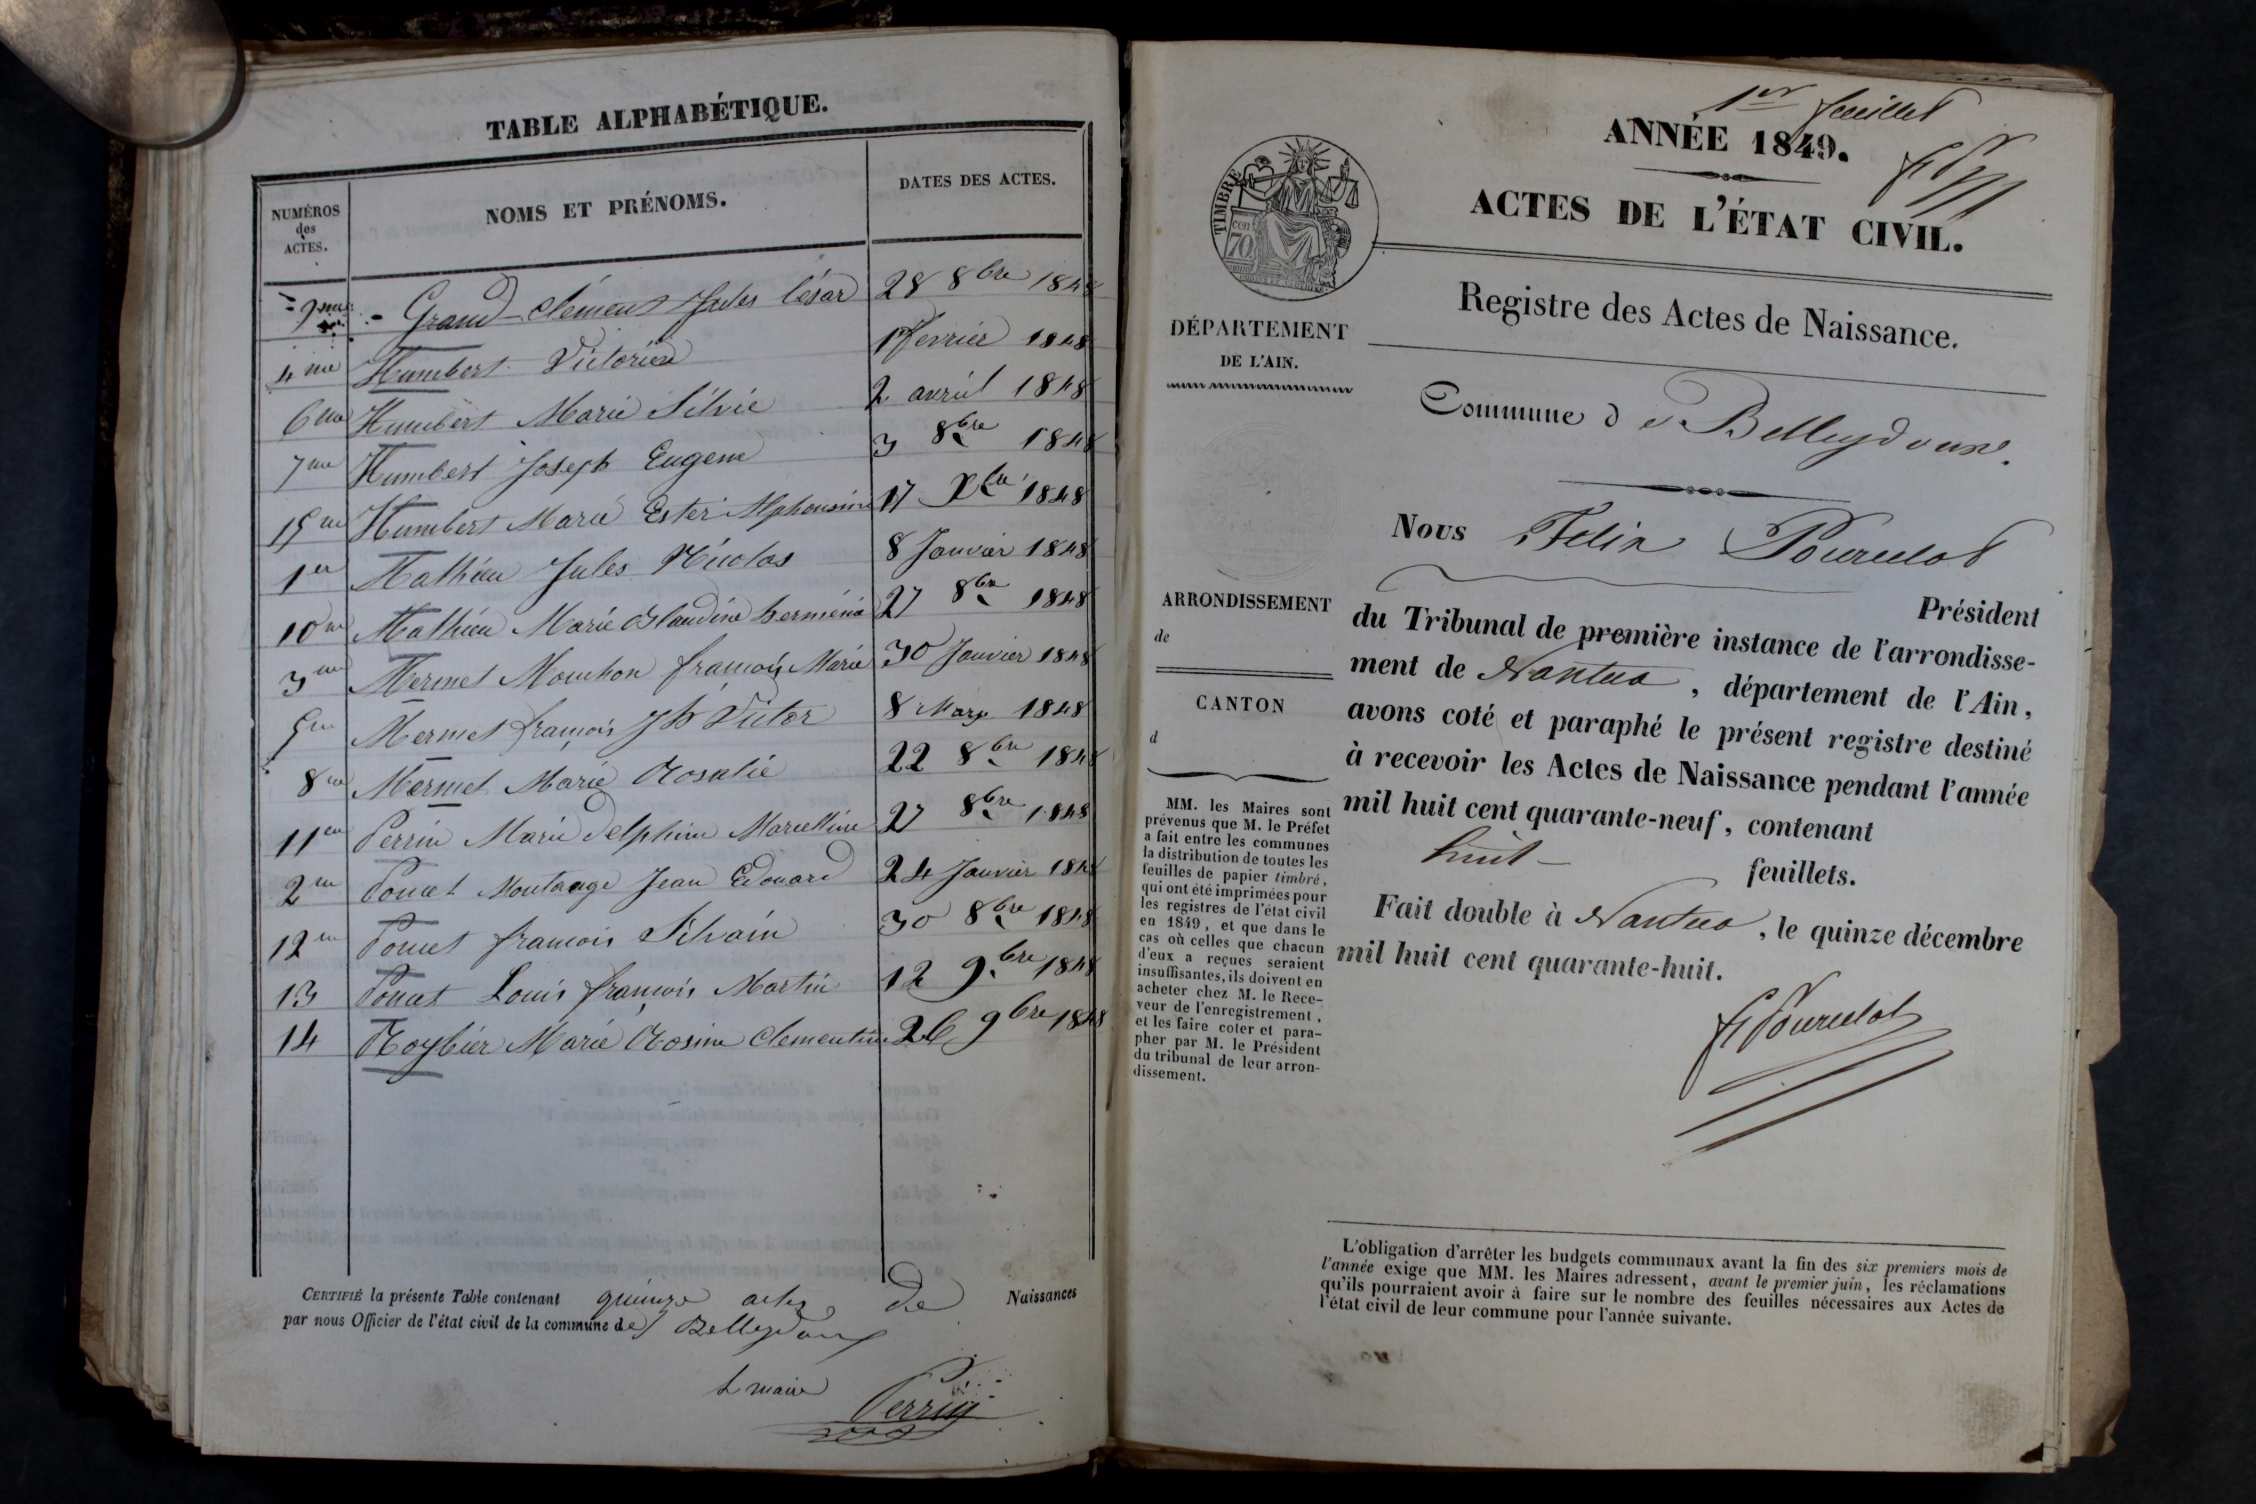 TABLE ALPHABÉTIQUE.
NUMÉROS des ACTES.
NOMS ET PRÉNOMS.
DATES DES ACTES.
9me Grand-Clément Jules César 28 8bre 1848
4me Humbert Victorine février 1848
6me Humbert Marie Silvie 2 avril 1848
7me Humbert Joseph Eugene 3 8bre 1848
15me Humbert Marie Ester Alphonsine 17 Xbre 1848
1er Mathieu Jules Nicolas 8 Janvier 1848
10me Mathieu Marie Claudine herménie 27 8bre 1848
3me Mermet Mouchon françois Marie 30 Janvier 1848
5me Mermet françois Jh Victor 8 Mars 1848
8me Mermet Marie Rosalie 22 8bre 1848
11me Perrin Marie Delphine Marcelline 27 8bre 1848
2me Poncet Montange Jean Edouard 24 Janvier 1848
12me Poncet francois Silvain 30 8bre 1848
13 Poncet Louis françois Martin 12 9bre 1848
14 Roybier Marie Rosine Clementine 26 9bre 1848
CERTIFIÉ la présente Table contenant quinze actes de Naissances
par nous Officier de l'état civil de la commune de Belleydoux
L maire
Perrin
1er feuillet
ANNÉE 1849.
ACTES DE L'ÉTAT CIVIL.
TIMBRE
70
Registre des Actes de Naissance.
DÉPARTEMENT
DE L'AIN.
Commune de Belleydoux.
Nous Felix Pourcelot
Président
du Tribunal de première instance de l'arrondisse-
ment de Nantua, département de l'Ain,
avons coté et paraphé le présent registre destiné
à recevoir les Actes de Naissance pendant l'année
mil huit cent quarante-neuf, contenant
huit feuillets.
Fait double à Nantua, le quinze décembre
mil huit cent quarante-huit.
f Pourcelot
ARRONDISSEMENT
de
CANTON
d
MM. les Maires sont
prévenus que M. le Préfet
a fait entre les communes
la distribution de toutes les
feuilles de papier timbré,
qui ont été imprimées pour
les registres de l'état civil
en 1849, et que dans le
cas où celles que chacun
d'eux a reçues seraient
insuffisantes, ils doivent en
acheter chez M. le Rece-
veur de l'enregistrement,
et les faire coter et para-
pher par M. le Président
du tribunal de leur arron-
dissement.
L'obligation d'arrêter les budgets communaux avant la fin des six premiers mois de
l'année exige que MM. les Maires adressent, avant le premier juin, les réclamations
qu'ils pourraient avoir à faire sur le nombre des feuilles nécessaires aux Actes de
l'état civil de leur commune pour l'année suivante.